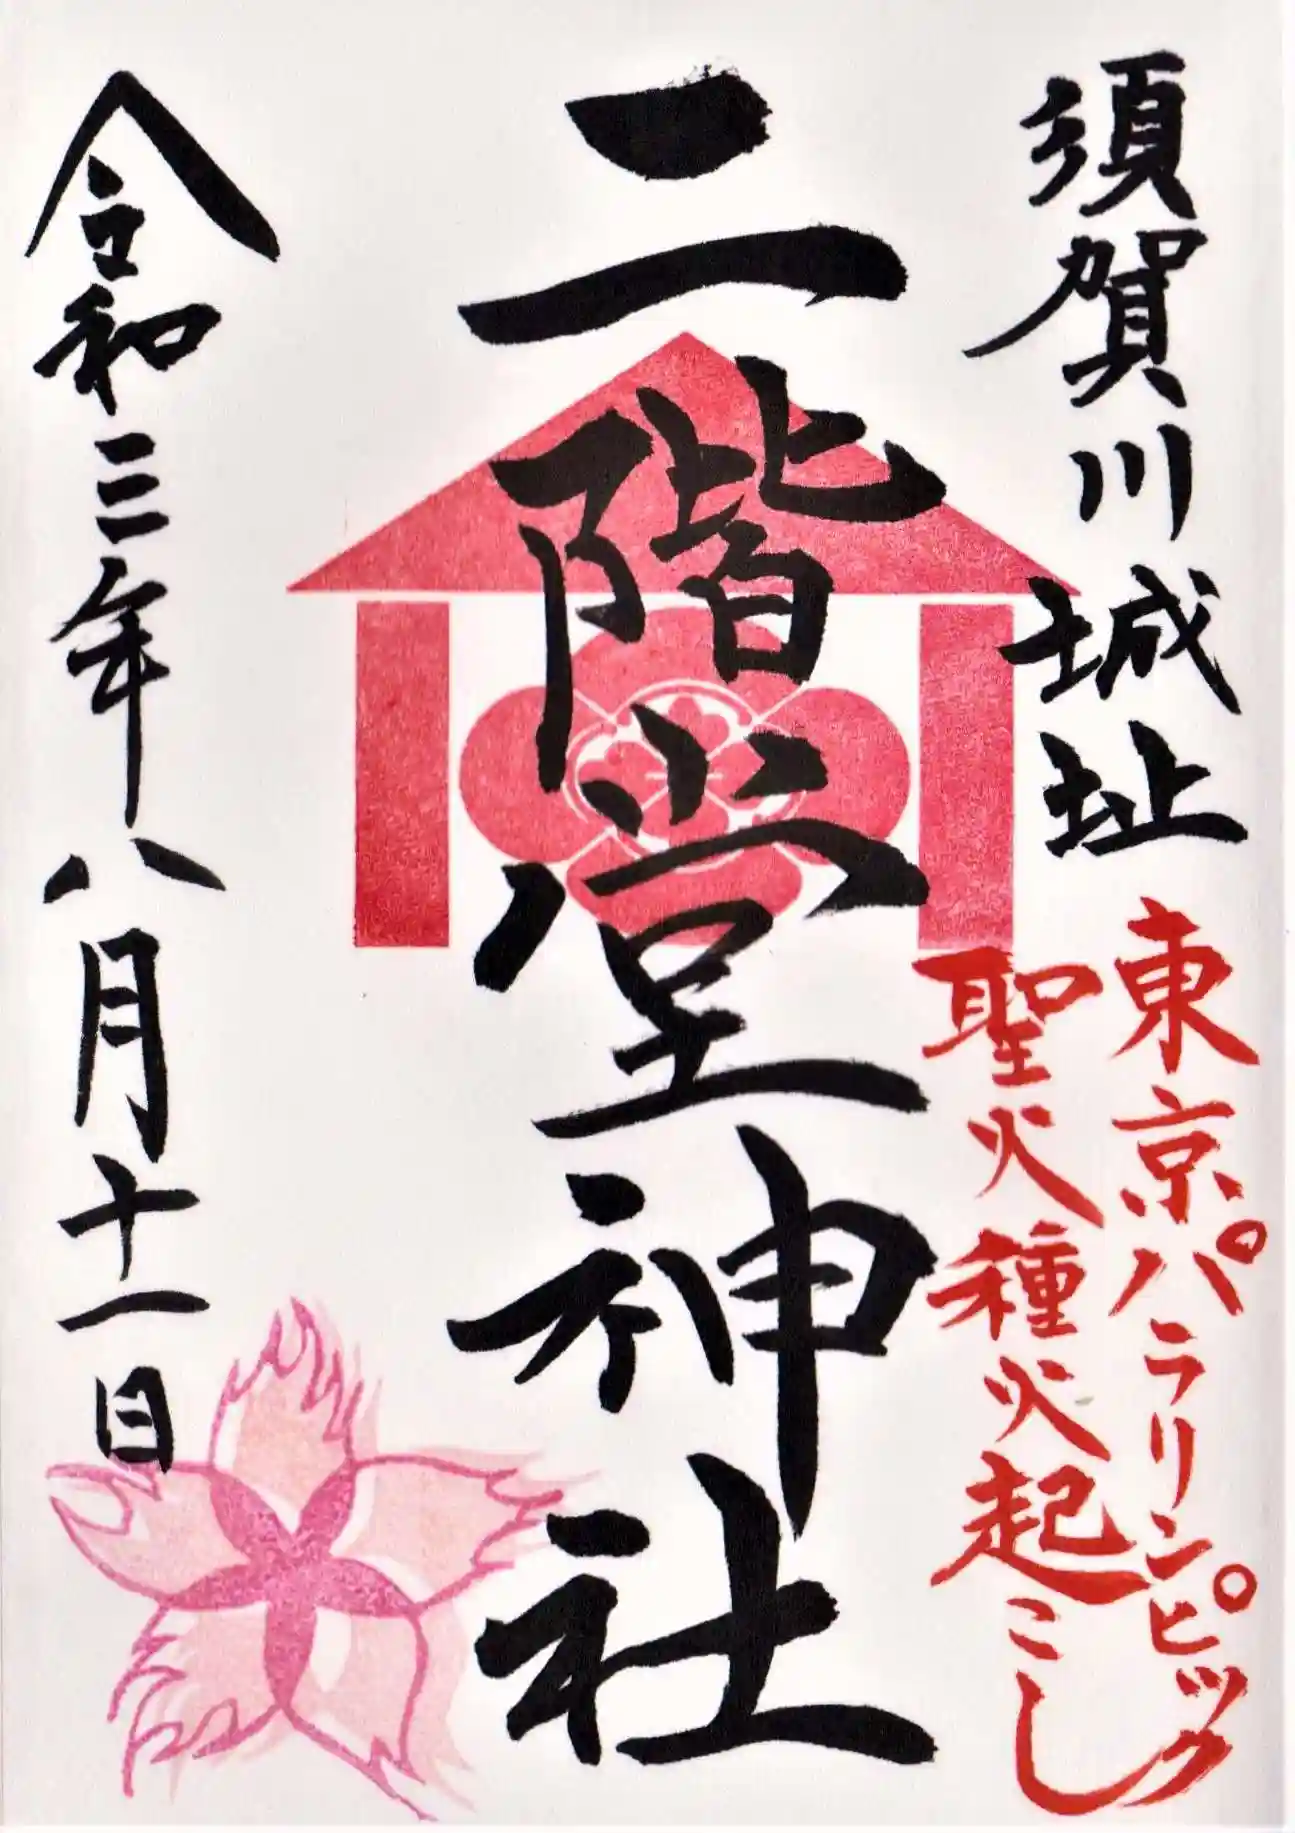 須賀川城址
東京パラリンピック
聖火種火起こし
二階堂神社
令和三年八月十一日